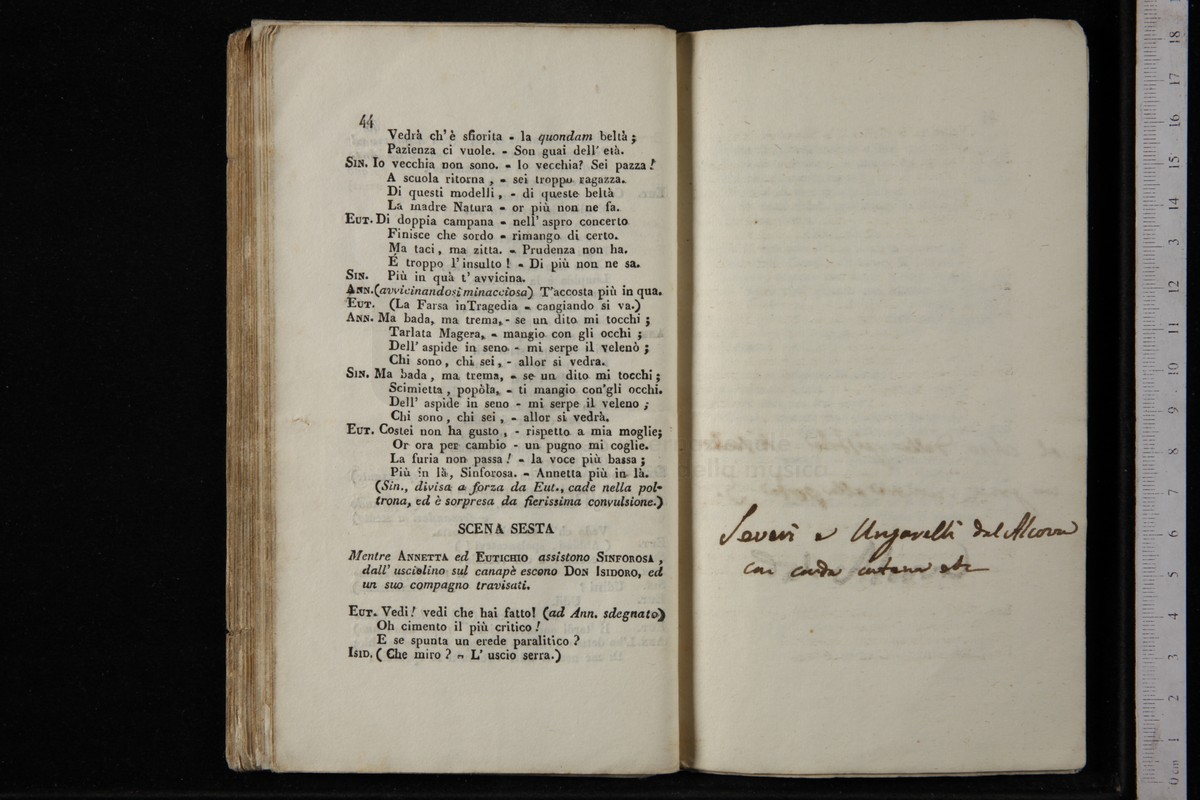 44
Vedrà ch' è sfiorita - la quondam beltà ;
Pazienza ci vuole. - Son guai dell' età.
SIN. Io vecchia non sono. - Io vecchia? Sei pazza !
A scuola ritorna , - sei troppo ragazza.
Di questi modelli , - di queste beltà
La madre Natura - or più non ne fa.
EUT. Di doppia campana - nell' aspro concerto
Finisce che sordo - rimango di certo.
Ma taci , ma zitta. - Prudenza non ha.
É troppo l' insulto ! - Di più non ne sa.
SIN. Più in quà t' avvicina.
ANN. (avvicinandosi minacciosa) T'accosta più in qua.
EUT. (La Farsa inTragedia - cangiando si va.)
ANN. Ma bada, ma trema, - se un dito mi tocchi ;
Tarlata Magera, - mangio con gli occhi ;
Dell' aspide in seno - mi serpe il velenò ;
Chi sono , chi sei , - allor si vedra.
SIN. Ma bada , ma trema, - se un dito mi tocchi ;
Scimietta , popòla, - ti mangio con'gli occhi.
Dell' aspide in seno - mi serpe il veleno ;
Chi sono , chi sei , - allor si vedrà.
EUT. Costei non ha gusto , - rispetto a mia moglie;
Or ora per cambio - un pugno mi coglie.
La furia non passa ! - la voce più bassa ;
Più in là, Sinforosa. - Annetta più in là.
(Sin., divisa a forza da Eut., cade nella pol-
trona, ed è sorpresa da fierissima convulsione.)
SCENA SESTA
Mentre ANNETTA ed EUTICHIO assistono SINFOROSA ,
dall' usciolino sul canapè escono DON ISIDORO, ed
un suo compagno travisati.
EUT. Vedi ! vedi che hai fatto! (ad Ann. sdegnato)
Oh cimento il più critico !
E se spunta un erede paralitico ?
ISID. ( Che miro ? - L' uscio serra.)
Severi e Ungarelli dal Alcova
con corda catena etc
della musica